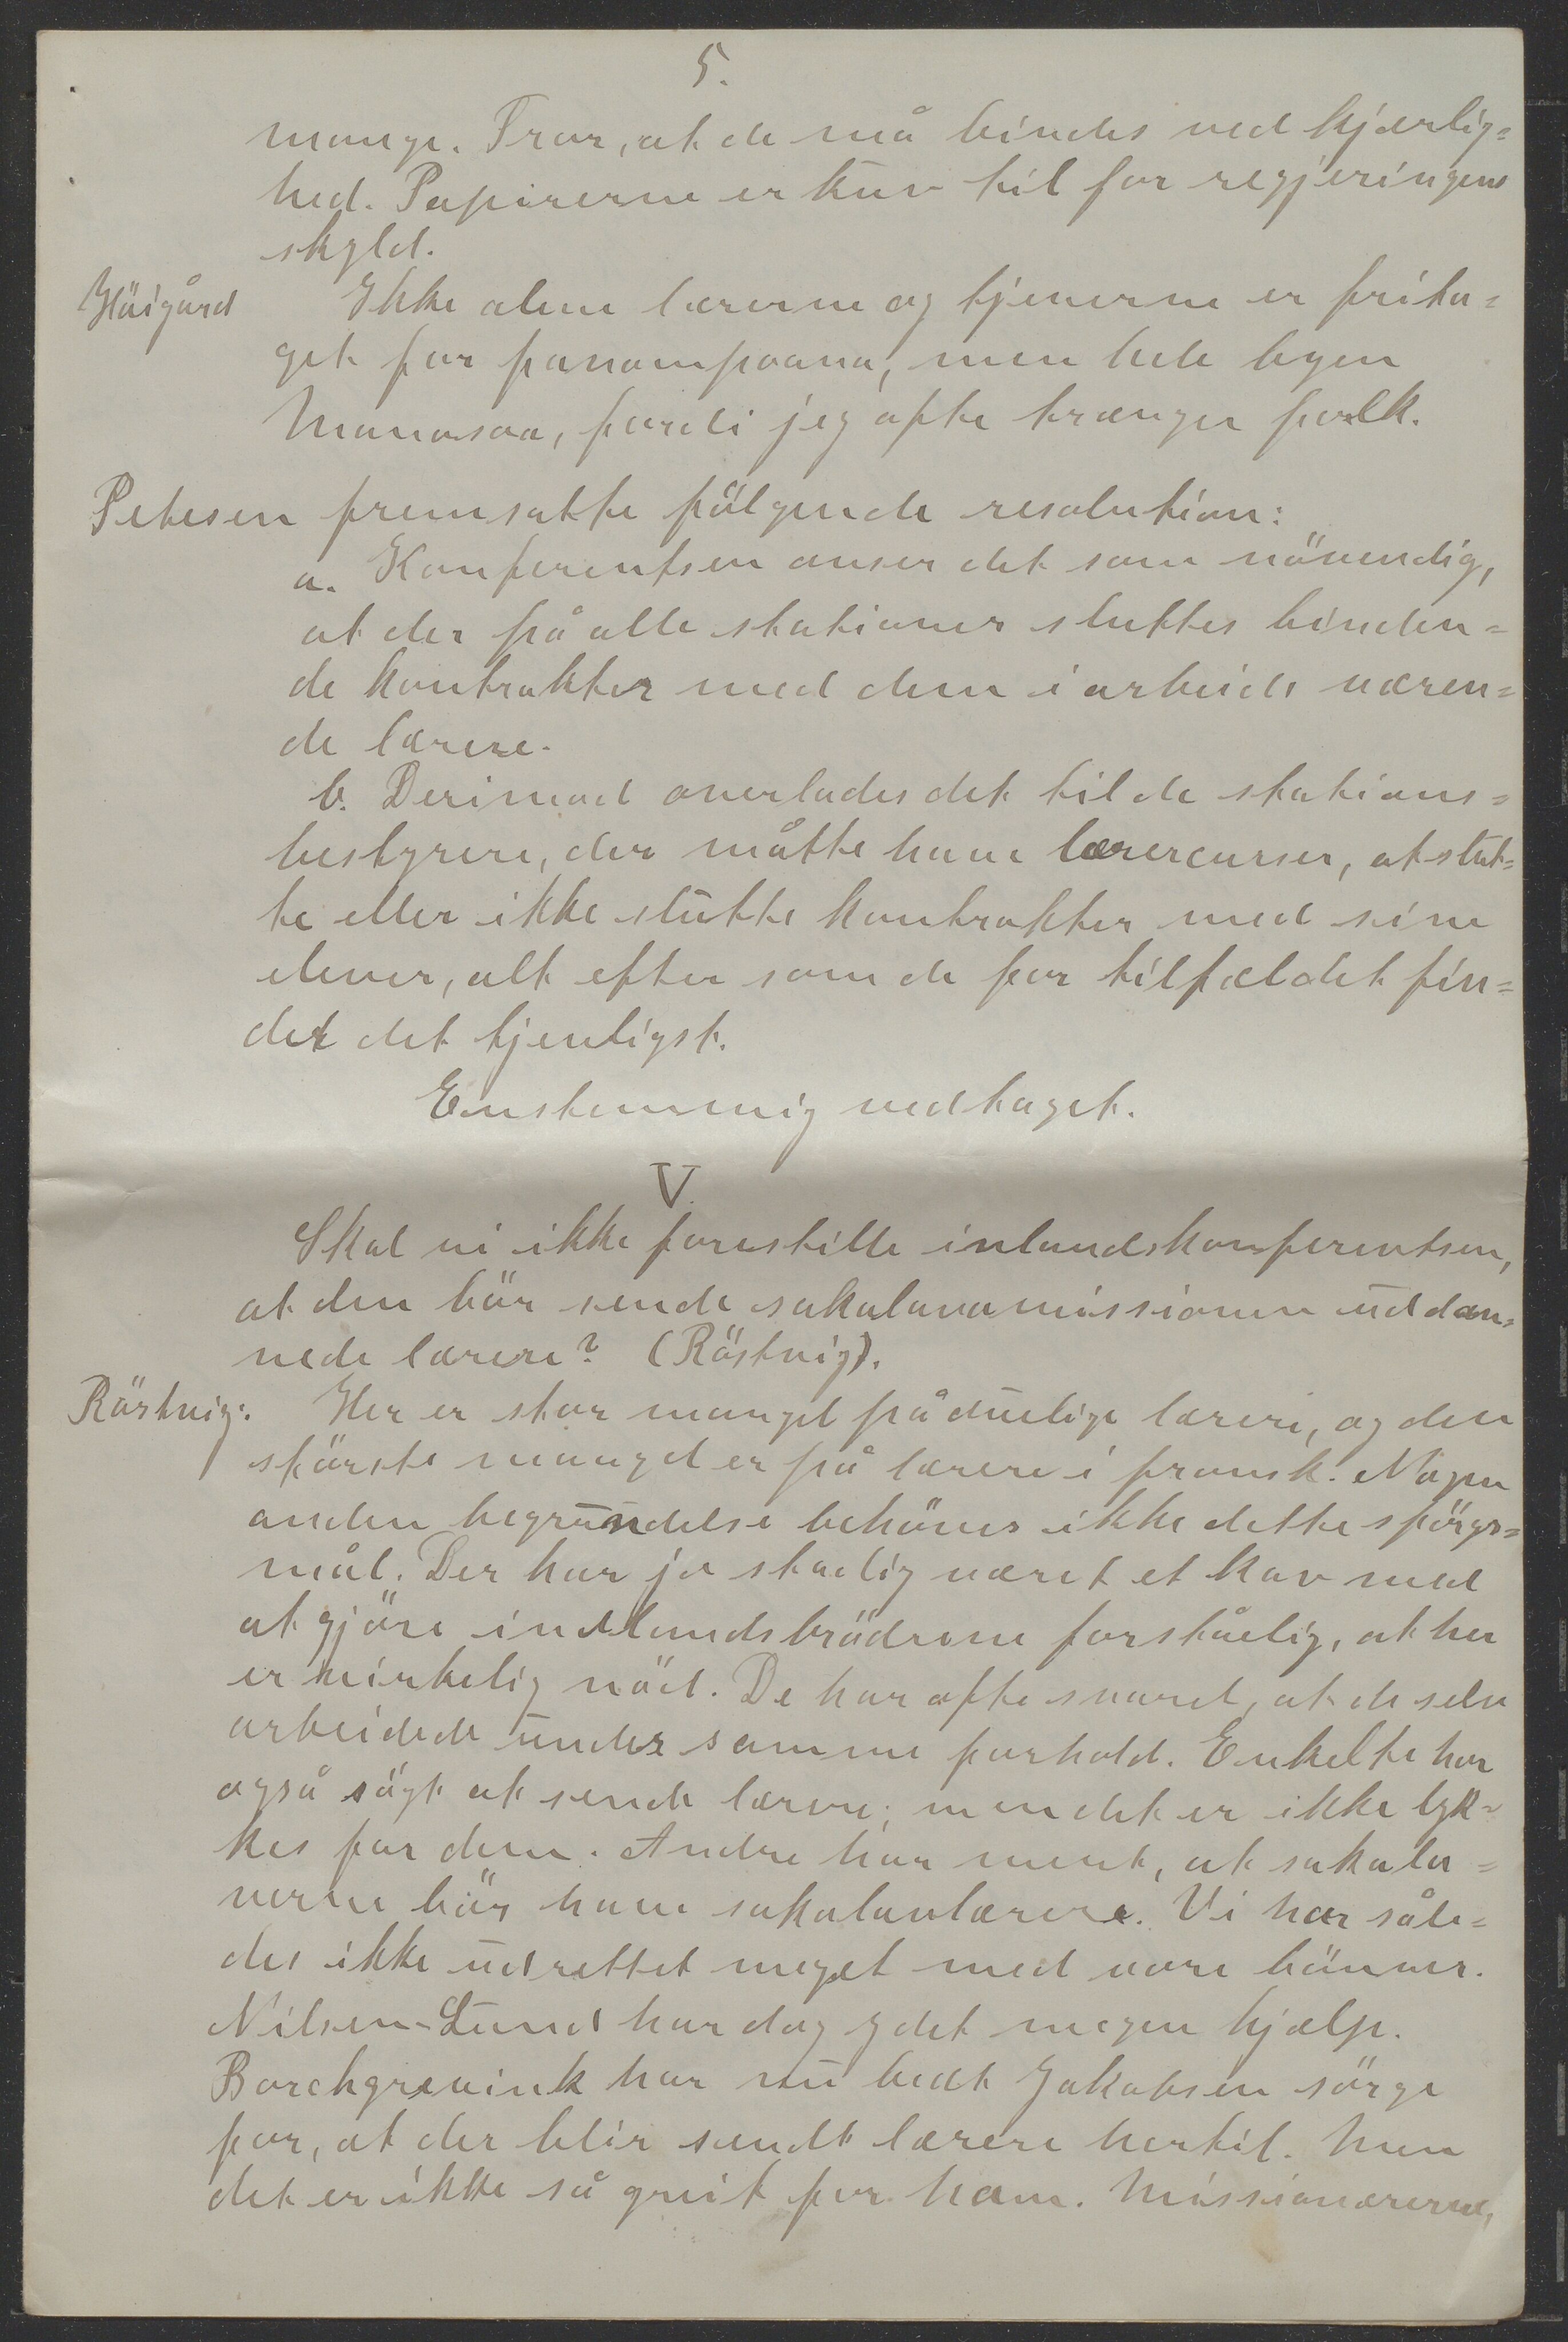 5.
mange. Tror, at de må bindes ved kjærlig=
hed. Papirerne er kūn til for regjeringens
skyld.
Höigård Ikke alene lærerne og tjenerne er frita=
get for fanompoana, men hele byen
Manasoa, fordi jeg ofte trænger folk.
Petesen fremsatte fölgende resolution:
a. Konferentsen anser det som növendig,
at der på alle stationer sluttes binden=
de kontrakter med dem i arbeide væren=
de lærere.
b. Derimod overlades det til de stations=
bestyrere, der måtte have lærercurser, at slut=
te eller ikke slūtte kontrakter med sine
elever, alt efter som de for tilfældet fin=
der det tjenligst.
Enstemmig vedtaget.
V.
Skal vi ikke forestille inlandskonferentsen,
at den bör sende sakalavamissionen ūddan=
nede lærere? (Röstvig).
Röstvig: Her er stor mangel på dūelige lærere, og den
störste mangel er på lærere i fransk. Nogen
anden begrūndelse behöves ikke dette spörgs=
mål. Der har jo stadig været et kav med
at gjöre indlandsbrödrene forståelig, at her
er virkelig nöd. De har ofte svaret, at de selv
arbeidede ūnder samme forhold. Enkelte har
også sögt at sende lærere; men det er ikke lyk=
kes for dem. Andre har ment, at sakala=
verne bör have sakalavlærere. Vi har såle=
des ikke ūdrettet meget med vore bönner.
Nilsen-Lūnd har dog ydet megen hjælp.
Borchgrevink har nū bedt Jakobsen sörge
for, at der blir sendt lærere hertil. Men
det er ikke så greit for ham. Missionærerne,